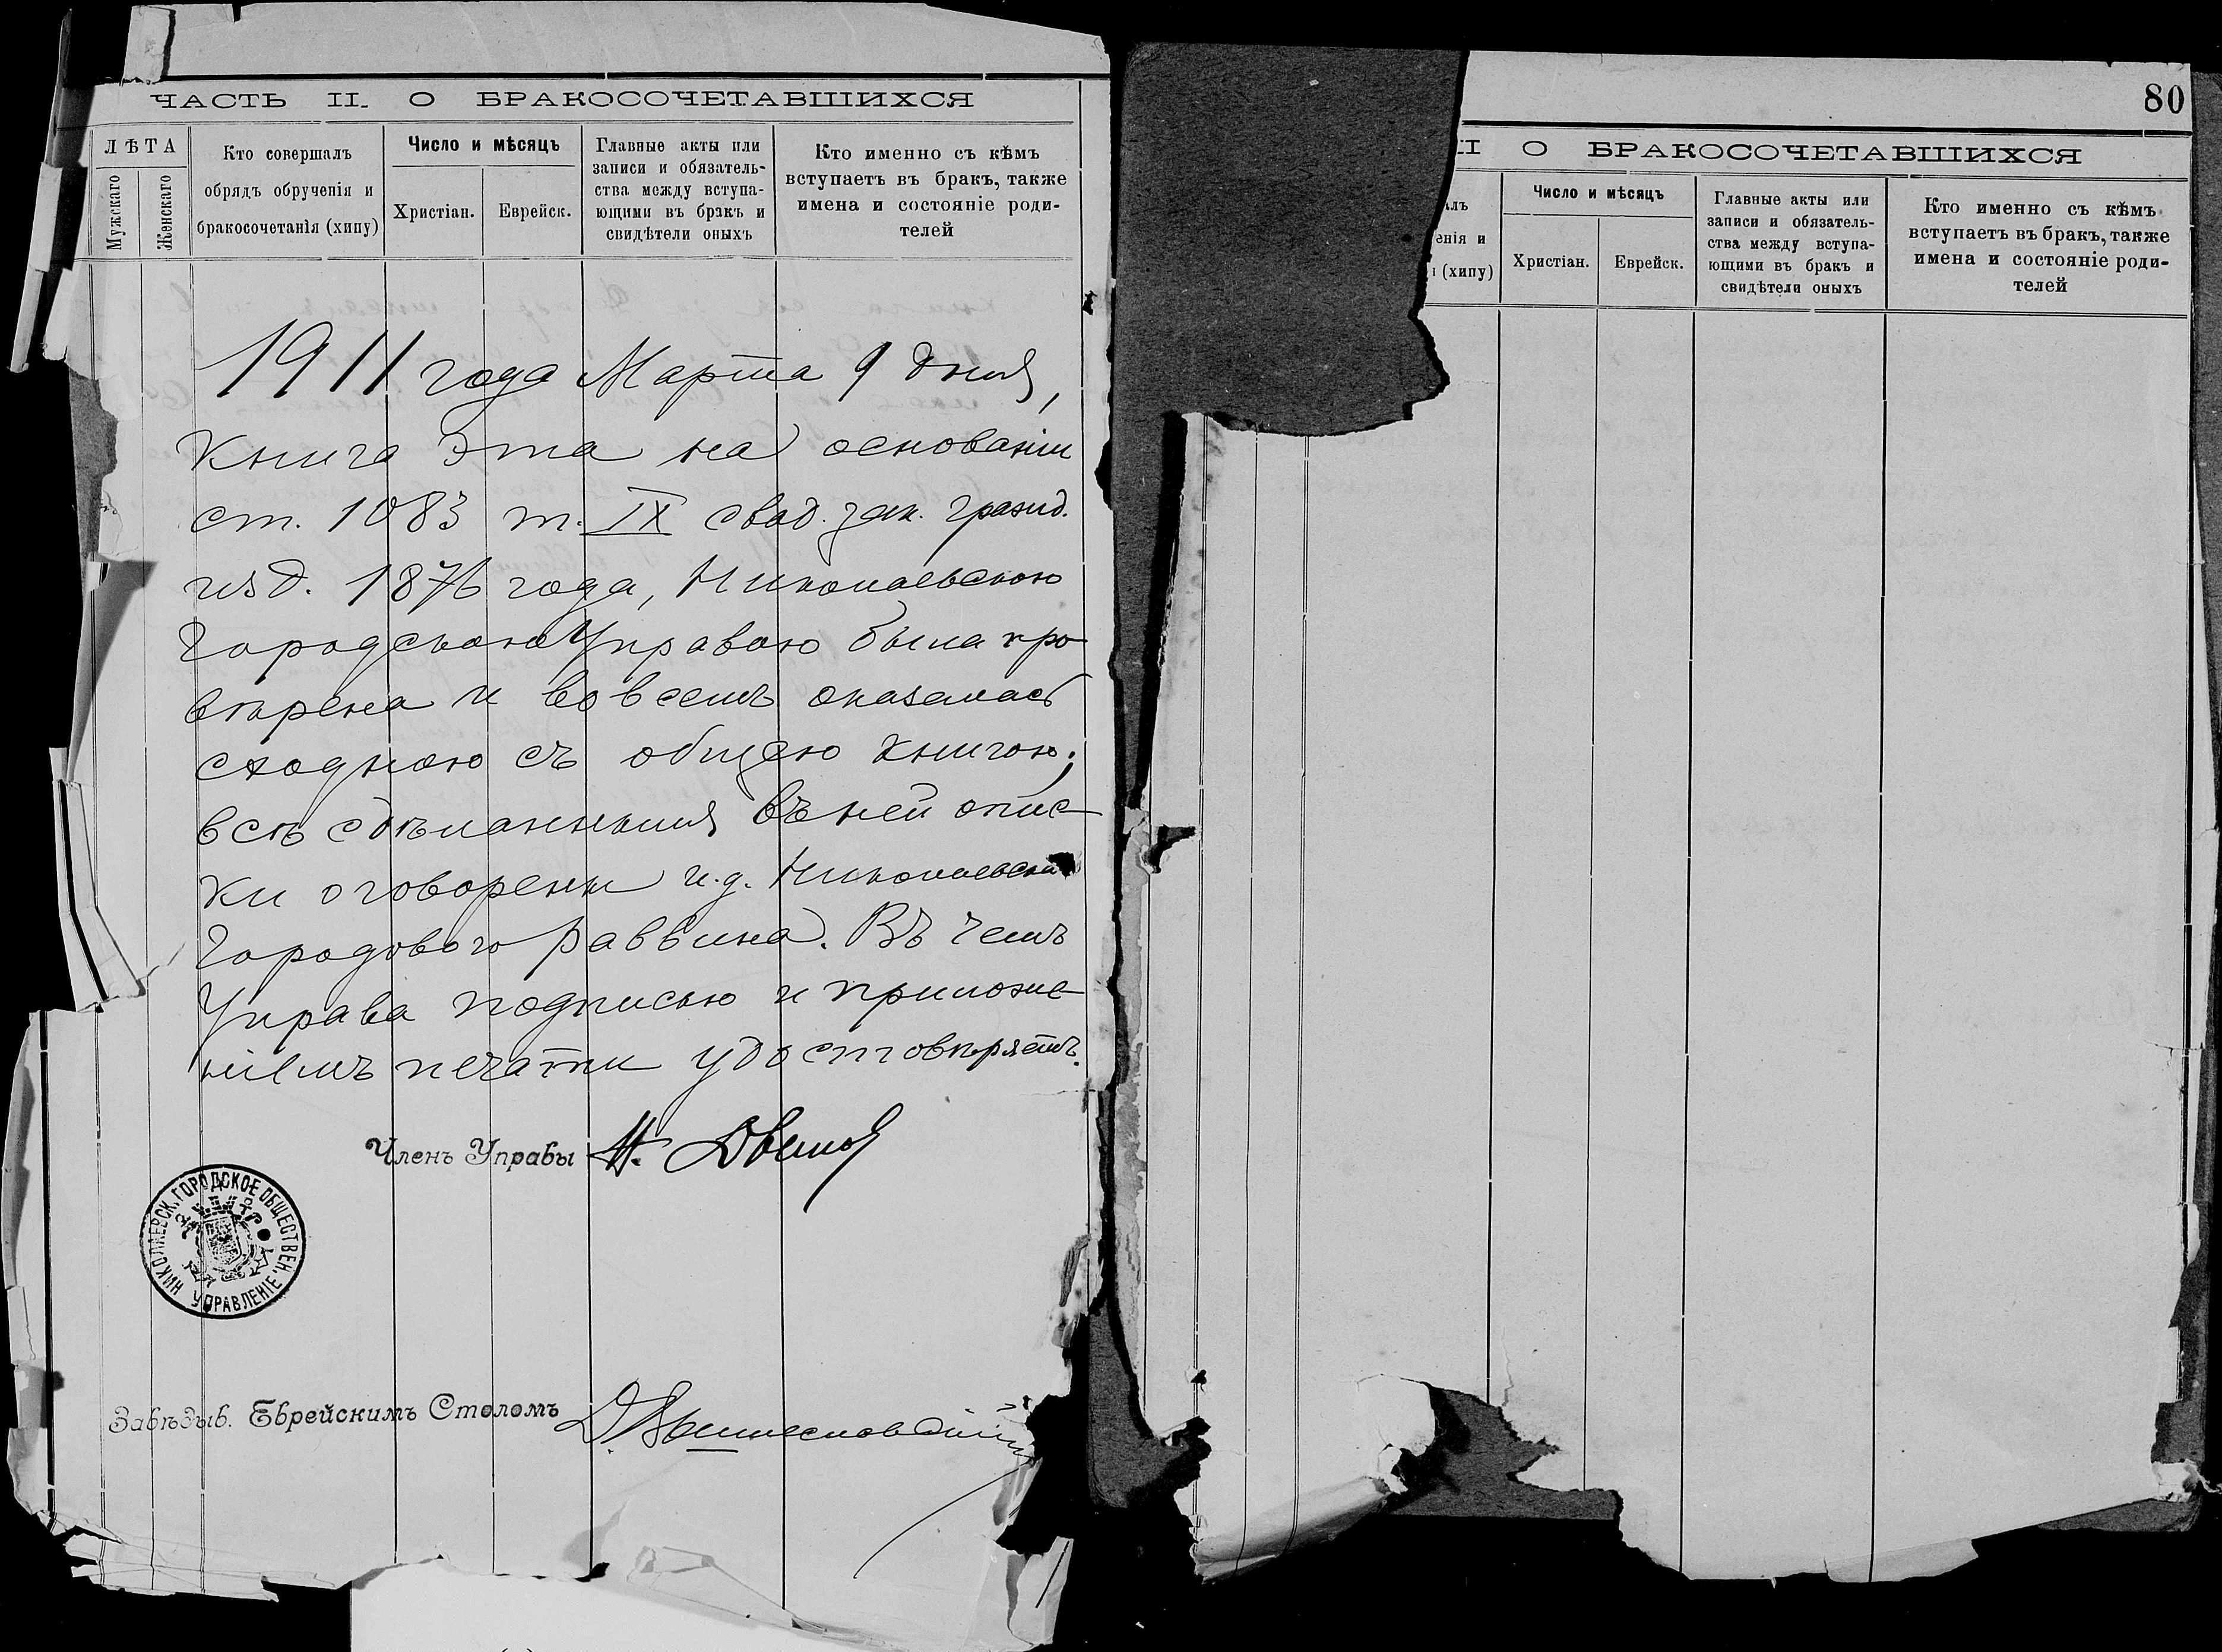 ЧАСТЬ II. О БРАКОСОЧЕТАВШИХСЯ
ЛѢТА
Мужскаго
Женскаго
Кто совершалъ
обрядъ обрученія и
бракосочетанія (хипу)
Число и мѣсяцъ
Христіан.
Еврейск.
Главные акты или
записи и обязатель-
ства между вступа-
ющими въ бракъ и
свидѣтели оныхъ
Кто именно съ кѣмъ
вступаетъ въ бракъ, также
имена и состояніе роди-
телей
1911 года Марта 9 дня,
Книга эта на основаніи
ст. 1083 т. IX свод. зак. гражд.
изд. 1876 года, Николаевскою
Городскою Управою была про
вѣрена и во всемъ оказалась
сходною съ общею книгою;
всѣ сдѣланныя въ ней опис-
ки оговорены и.д. Николаевска
Городового раввина. Въ чемъ
Управа подписью и приложе-
ніемъ печати удостовѣряетъ.
Членъ Управы
НИКОЛАЕВСК. ГОРОДСКОЕ ОБЩЕСТВЕН. УПРАВЛЕНІЕ
Завѣдыв. Еврейскимъ Столомъ
80
II О БРАКОСОЧЕТАВШИХСЯ
алъ
енія и
(хипу)
Число и мѣсяцъ
Христіан.
Еврейск.
Главные акты или
записи и обязатель-
ства между вступа-
ющими въ бракъ и
свидѣтели оныхъ
Кто именно съ кѣмъ
вступаетъ въ бракъ, также
имена и состояніе роди-
телей